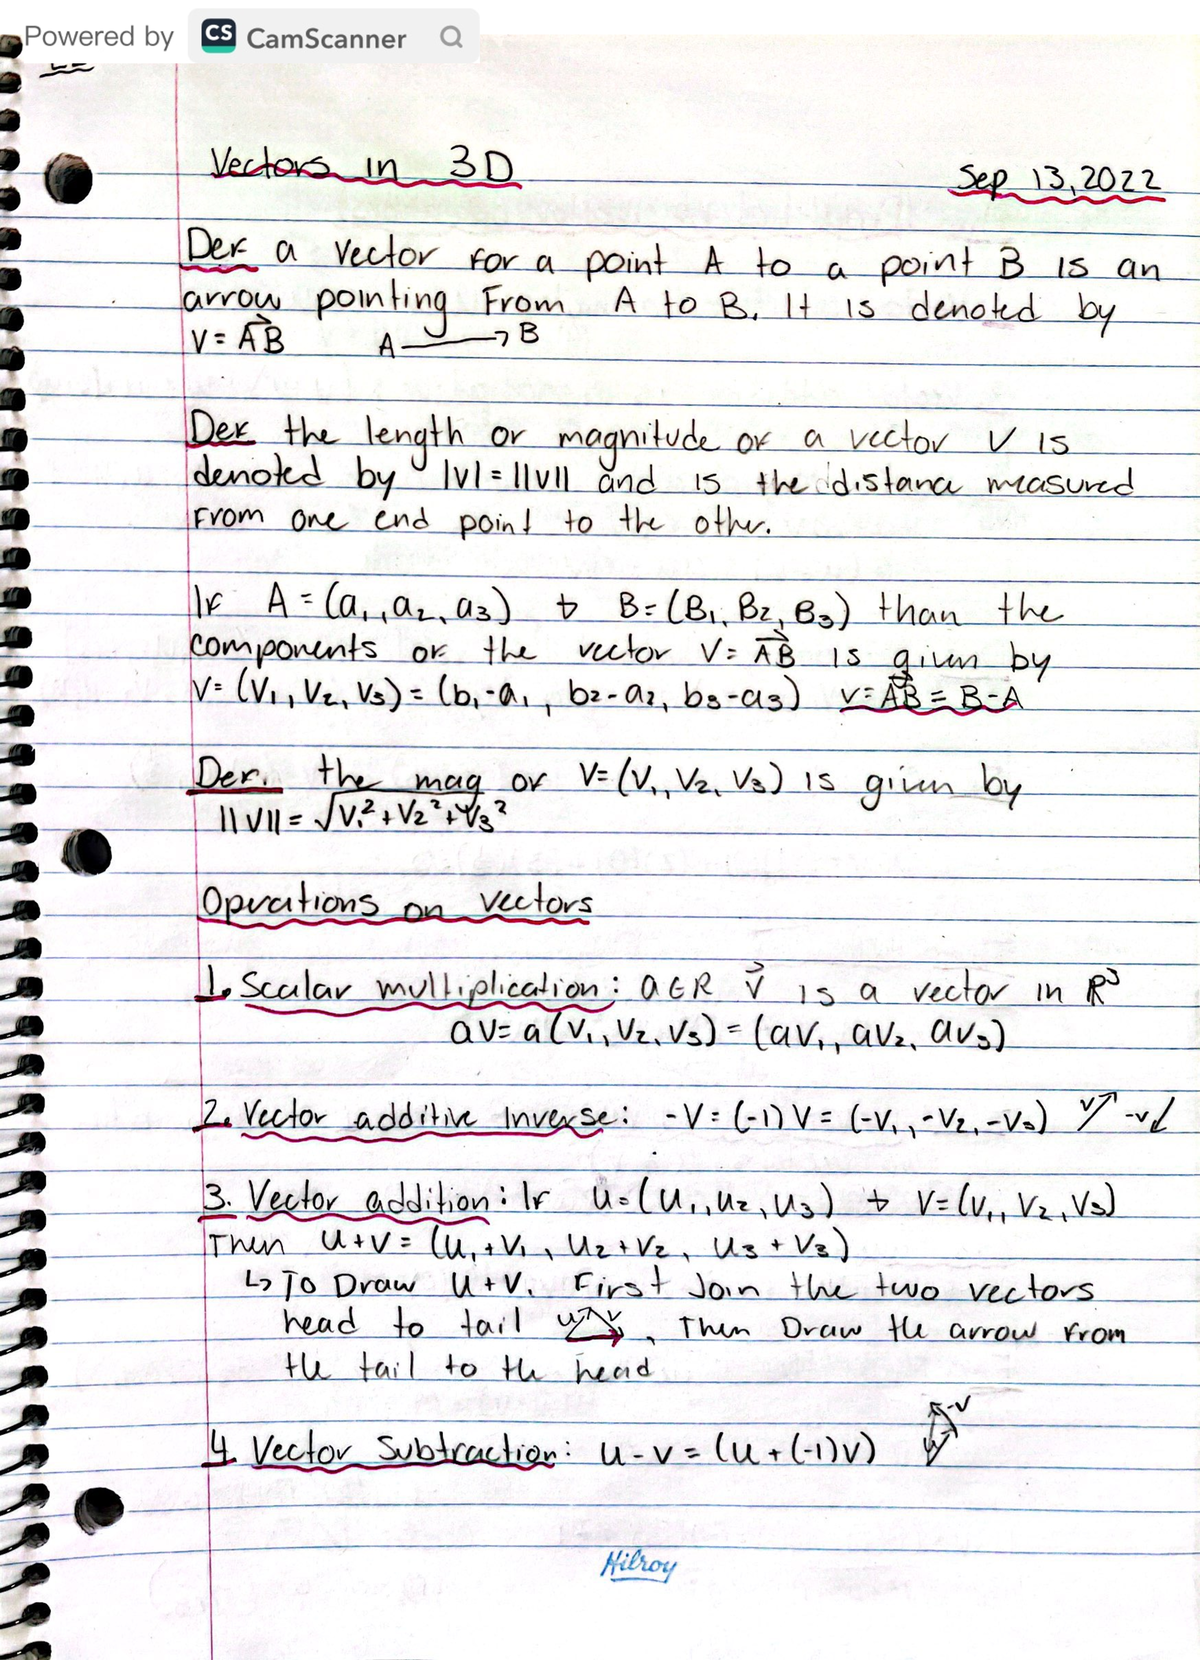 Powered by CS CamScanner
Vectors in 3D
Sep 13, 2022
Def a vector for a point A to a point B is an
arrow pointing From A to B. It is denoted by
V = A⃗B A ⟶ B
Def the length or magnitude of a vector V is
denoted by |V| = ||V|| and is the distance measured
From one end point to the other.
If A = (a₁, a₂, a₃) + B = (B₁, B₂, B₃) than the
components of the vector V = A⃗B is given by
V = (V₁, V₂, V₃) = (b₁-a₁, b₂-a₂, b₃-a₃) V = A⃗B = B-A
Def. the mag of V = (V₁, V₂, V₃) is given by
||V|| = √V₁² + V₂² + V₃²
Operations on vectors
1. Scalar multiplication: a∈R v⃗ is a vector in R³
av = a(V₁, V₂, V₃) = (aV₁, aV₂, aV₃)
2. Vector additive Inverse: -V = (-1) V = (-V₁, -V₂, -V₃) v -v
3. Vector addition: If u = (u₁, u₂, u₃) + V = (V₁, V₂, V₃)
Then u+v = (u₁+V₁, u₂+V₂, u₃+V₃)
↳ To Draw u+v. First Join the two vectors
head to tail u v, Then Draw the arrow from
the tail to the head
-v
4. Vector Subtraction: u-v = (u+(-1)v)
Hilroy